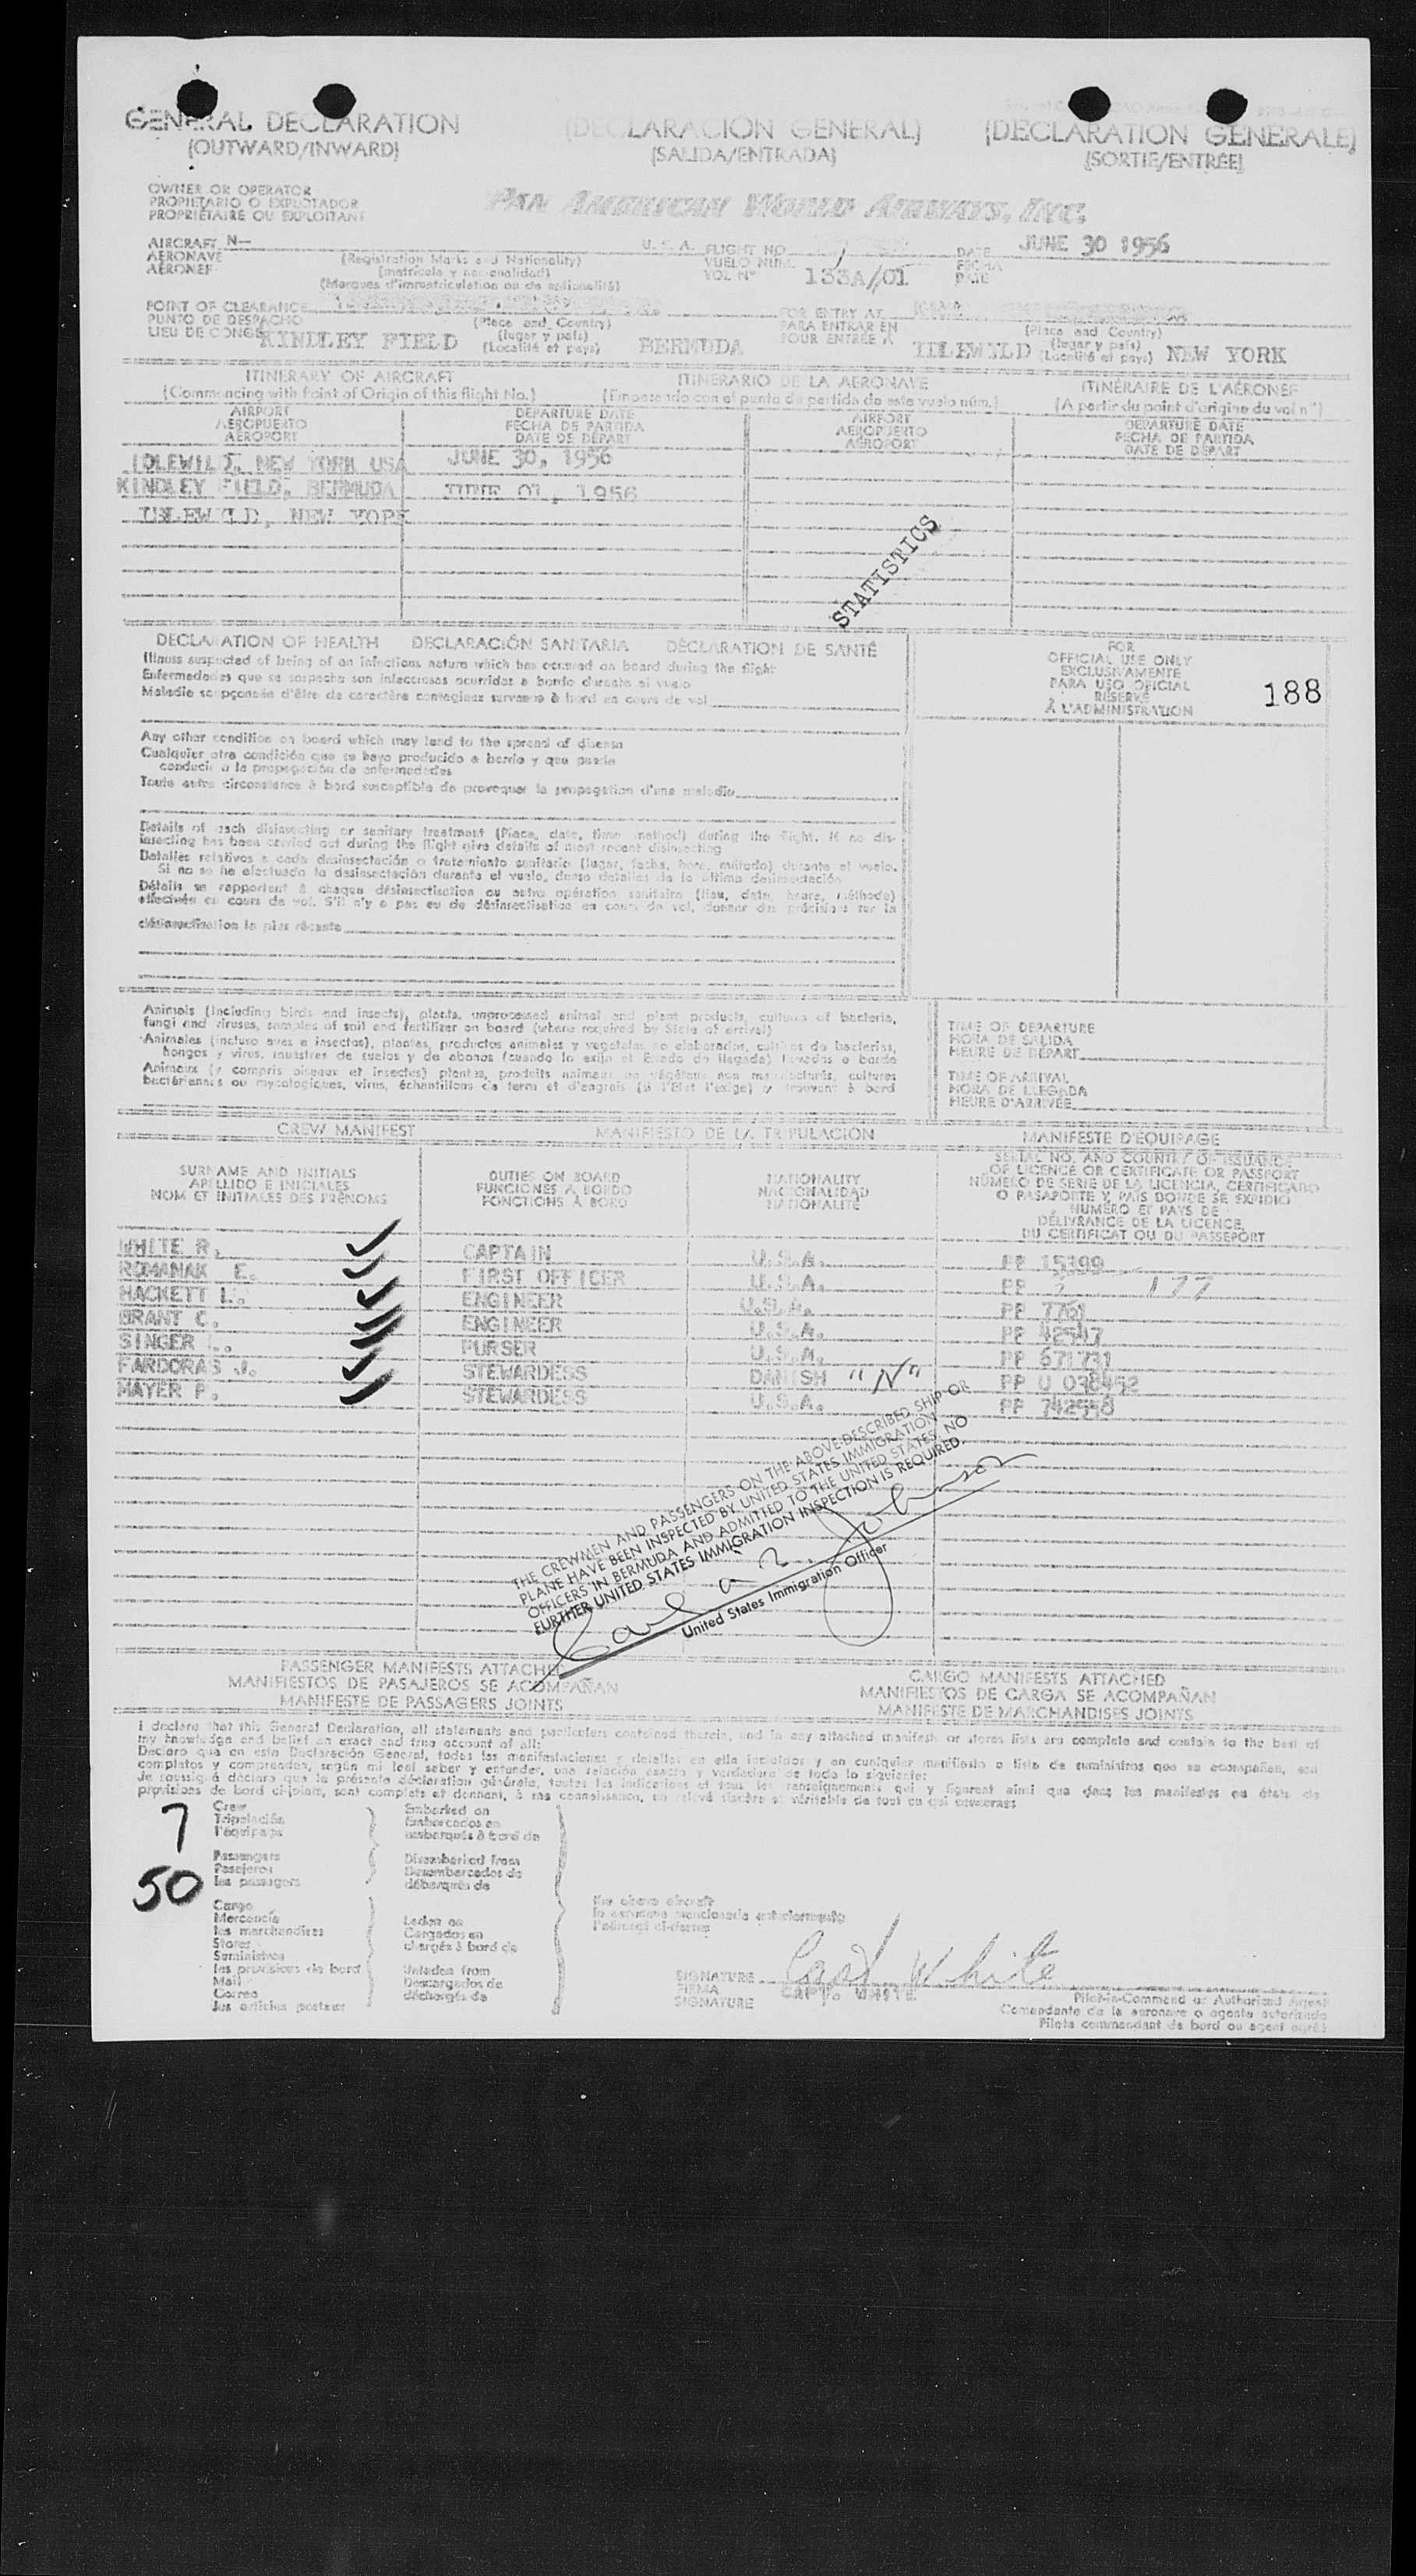 GENERAL DECLARATION
(OUTWARD/INWARD)
(DECLARACION GENERAL)
(SALIDA/ENTRADA)
(DECLARATION GENERALE)
(SORTIE/ENTRÉE)
OWNER OR OPERATOR
PROPIETARIO O EXPLOTADOR
PROPRIÉTAIRE OU EXPLOITANT
PAN AMERICAN WORLD AIRWAYS, INC.
AIRCRAFT N—
AERONAVE
AÉRONEF
(Registration Marks and Nationality)
(matrícula y nacionalidad)
(Marques d'immatriculation ou de nationalité)
U. S. A.
FLIGHT NO.
VUELO NUM.
VOL Nº
133A/01
DATE
FECHA
DATE
JUNE 30 1956
POINT OF CLEARANCE
PUNTO DE DESPACHO
LIEU DE CONGÉ
KINDLEY FIELD
(Place and Country)
(lugar y país)
(Localité et pays)
BERMUDA
FOR ENTRY AT
PARA ENTRAR EN
POUR ENTRÉE A
IDLEWILD
(Place and Country)
(lugar y país)
(Localité et pays)
NEW YORK
ITINERARY OF AIRCRAFT
(Commencing with Point of Origin of this flight No.)
ITINERARIO DE LA AERONAVE
(Empezando con el punto de partida de este vuelo núm.)
ITINÉRAIRE DE L'AÉRONEF
(A partir du point d'origine du vol nº)
AIRPORT
AEROPUERTO
AÉROPORT
DEPARTURE DATE
FECHA DE PARTIDA
DATE DE DÉPART
AIRPORT
AEROPUERTO
AÉROPORT
DEPARTURE DATE
FECHA DE PARTIDA
DATE DE DÉPART
IDLEWILD, NEW YORK USA JUNE 30, 1956
KINDLEY FIELD, BERMUDA JUNE 01, 1956
IDLEWILD, NEW YORK
STATISTICS
DECLARATION OF HEALTH DECLARACIÓN SANITARIA DÉCLARATION DE SANTÉ
Illness suspected of being of an infectious nature which has occurred on board during the flight
Enfermedades que se sospecha son infecciosas ocurridas a bordo durante el vuelo
Maladie soupçonnée d'être de caractère contagieux survenue à bord en cours de vol
FOR
OFFICIAL USE ONLY
EXCLUSIVAMENTE
PARA USO OFICIAL
RÉSERVÉ
À L'ADMINISTRATION
188
Any other condition on board which may lead to the spread of disease
Cualquier otra condición que se haya producido a bordo y que pueda
conducir a la propagación de enfermedades
Toute autre circonstance à bord susceptible de provoquer la propagation d'une maladie
Details of each disinsecting or sanitary treatment (Place, date, time method) during the flight. If no dis-
insecting has been carried out during the flight give details of most recent disinsecting
Detalles relativos a cada desinsectación o tratamiento sanitario (lugar, fecha, hora, método) durante el vuelo.
Si no se ha efectuado la desinsectación durante el vuelo, dense detalles de la última desinsectación
Détails se rapportant à chaque désinsectisation ou autre opération sanitaire (lieu, date, heure, méthode)
effectuée en cours de vol. S'il n'y a pas eu de désinsectisation en cours de vol, donner des précisions sur la
désinsectisation la plus récente
Animals (including birds and insects), plants, unprocessed animal and plant products, cultures of bacteria,
fungi and viruses, samples of soil and fertilizer on board (where required by State of arrival)
Animales (incluso aves e insectos), plantas, productos animales y vegetales no elaborados, cultivos de bacterias,
hongos y virus, muestras de suelos y de abonos (cuando lo exija el Estado de llegada) llevados a bordo
Animaux (y compris oiseaux et insectes) plantes, produits animaux ou végétaux non manufacturés, cultures
bactériennes ou mycologiques, virus, échantillons de terre et d'engrais (si l'État l'exige) se trouvant à bord
TIME OF DEPARTURE
HORA DE SALIDA
HEURE DE DÉPART
TIME OF ARRIVAL
HORA DE LLEGADA
HEURE D'ARRIVÉE
CREW MANIFEST MANIFIESTO DE LA TRIPULACION MANIFESTE D'ÉQUIPAGE
SURNAME AND INITIALS
APELLIDO E INICIALES
NOM ET INITIALES DES PRÉNOMS
DUTIES ON BOARD
FUNCIONES A BORDO
FONCTIONS À BORD
NATIONALITY
NACIONALIDAD
NATIONALITÉ
SERIAL NO. AND COUNTRY OF ISSUANCE
OF LICENCE OR CERTIFICATE OR PASSPORT
NÚMERO DE SERIE DE LA LICENCIA, CERTIFICADO
O PASAPORTE Y PAÍS DONDE SE EXPIDIÓ
NUMÉRO ET PAYS DE
DÉLIVRANCE DE LA LICENCE,
DU CERTIFICAT OU DU PASSEPORT
WHITE R. CAPTAIN U.S.A. PP 15399
ROMANAK E. FIRST OFFICER U.S.A. PP 177
HACKETT L. ENGINEER U.S.A. PP 7761
BRANT C. ENGINEER U.S.A. PP 42547
SINGER PURSER U.S.A. PP 671731
FARDORAS J. STEWARDESS DANISH "N" PP U 038452
MAYER P. STEWARDESS U.S.A. PP 742558
THE CREWMEN AND PASSENGERS ON THE ABOVE-DESCRIBED SHIP OR
PLANE HAVE BEEN INSPECTED BY UNITED STATES IMMIGRATION
OFFICERS IN BERMUDA AND ADMITTED TO THE UNITED STATES. NO
FURTHER UNITED STATES IMMIGRATION INSPECTION IS REQUIRED.
United States Immigration Officer
PASSENGER MANIFESTS ATTACHED
MANIFIESTOS DE PASAJEROS SE ACOMPAÑAN
MANIFESTE DE PASSAGERS JOINTS
CARGO MANIFESTS ATTACHED
MANIFIESTOS DE CARGA SE ACOMPAÑAN
MANIFESTE DE MARCHANDISES JOINTS
I declare that this General Declaration, all statements and particulars contained therein, and in any attached manifests or stores lists are complete and contain to the best of
my knowledge and belief an exact and true account of all:
Declaro que en esta Declaración General, todas las manifestaciones y detalles en ella incluidos y en cualquier manifiesto o lista de suministros que se acompañan, son
completos y comprenden, según mi leal saber y entender, una relación exacta y verdadera de todo lo siguiente:
Je soussigné déclare que la présente déclaration générale, toutes les indications et tous les renseignements qui y figurent ainsi que dans les manifestes ou états de
provisions de bord ci-joints, sont complets et donnent, à ma connaissance, un relevé sincère et véritable de tout ce qui concerne:
7
Crew
Tripulación
l'équipage
50
Passengers
Pasajeros
les passagers
Cargo
Mercancía
les marchandises
Stores
Suministros
les provisions de bord
Mail
Correo
les articles postaux
Embarked on
Embarcados en
embarqués à bord de
Disembarked from
Desembarcados de
débarqués de
Laden on
Cargados en
chargés à bord de
Unladen from
Descargados de
déchargés de
the above aircraft
la aeronave mencionada anteriormente
l'aéronef ci-dessus
SIGNATURE
FIRMA
SIGNATURE
Capt White
CAPT. WHITE
Pilot-in-Command or Authorized Agent
Comandante de la aeronave o agente autorizado
Pilote commandant de bord ou agent agréé